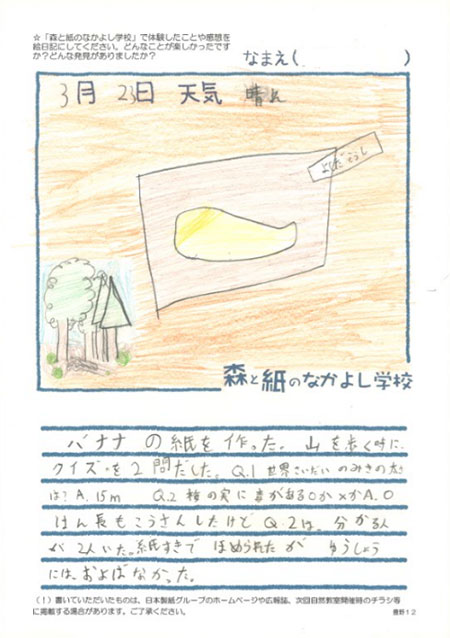 ☆「森と紙のなかよし学校」で体験したことや感想を
絵日記にしてください。どんなことが楽しかったです
か？どんな発見がありましたか？
なまえ( )
3月 23日 天気 晴れ
森と紙のなかよし学校
バナナの紙を作った。山を歩く時に、
クイズを2問だした。Q.1 世界さいだいのみきの太さ
は? A.15m Q.2 の実に毒がある○か×か A.○
はん長もこうさんしたけどQ.2は。分かる人
が2人いた。紙すきでほめられたがゆうしょう
にはおよばなかった。
(!)書いていただいたものは、日本製紙グループのホームページや広報誌、次回自然教室開催時のチラシ等
に掲載する場合があります。ご了承ください。